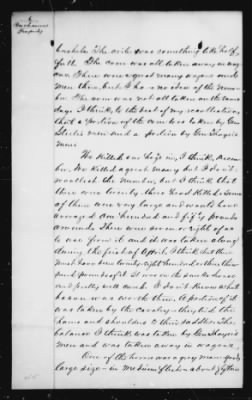 bushels. The crib was something like half
full. The corn was all taken away in wag-
ons. There were a great many wagons and
men there, but I have no idea of the num-
ber. The corn was not all taken on the same
day. I think, to the best of my recollection,
that a portion of the corn was taken by Gen.
men and a portion by Gen.
We killed our hogs in, I think, Decem-
ber. We killed a great many but I do not
recollect the number, but I think that
there were twenty three head killed. Some
of them were very large and would have
averaged one hundred and fifty pounds
around. There were six or eight of us
to use from it and it was taken along
during the first of April. I think that there
must have been twenty eight hundred or three thou-
sand pounds of it. It was in the smoke house
and pretty well smoked. I don't know what
bacon was worth then. A portion of it
was taken by the Cavalry. They tied the
hams and shoulders to their saddles. The
balance I think was taken by Gen.
men and was taken away in wagons.
One of the horses was a grey mare - good
large size - in medium flesh - about